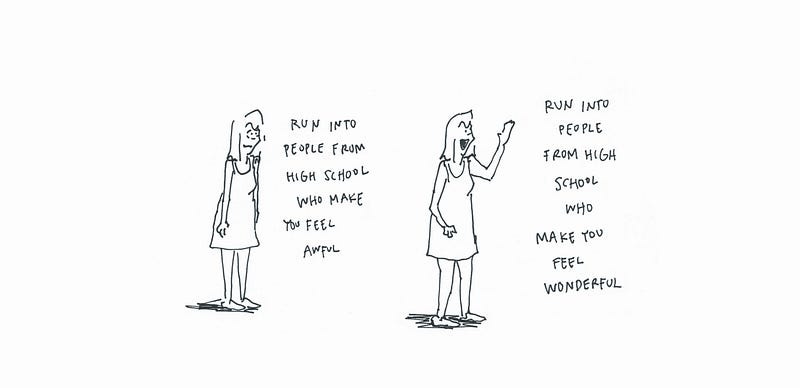 RUN INTO
PEOPLE FROM
HIGH SCHOOL
WHO MAKE
YOU FEEL
AWFUL
RUN INTO
PEOPLE
FROM HIGH
SCHOOL
WHO
MAKE YOU
FEEL
WONDERFUL